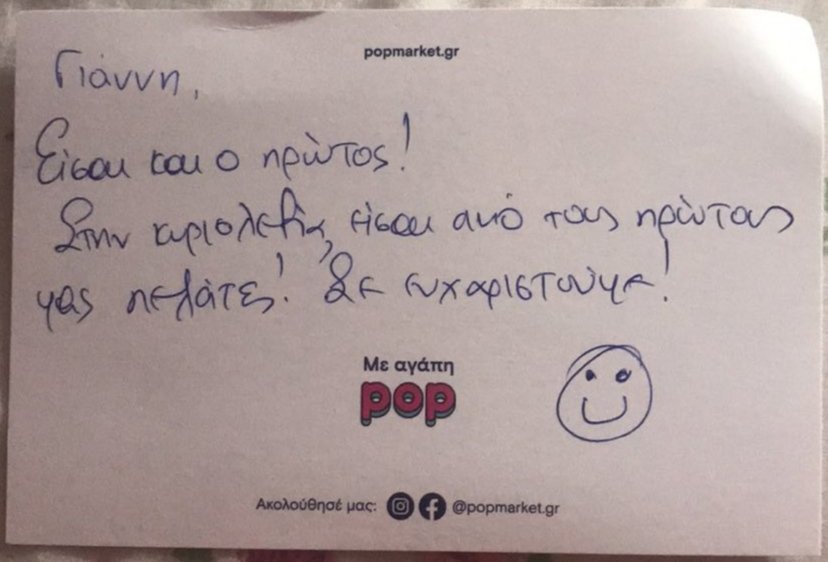 popmarket.gr
Γιάννη,
Είσαι και ο πρώτος!
Στην κυριολεξία, είσαι από τους πρώτους
μας πελάτες! Σε ευχαριστούμε!
Με αγάπη
pop
Ακολούθησέ μας: @popmarket.gr